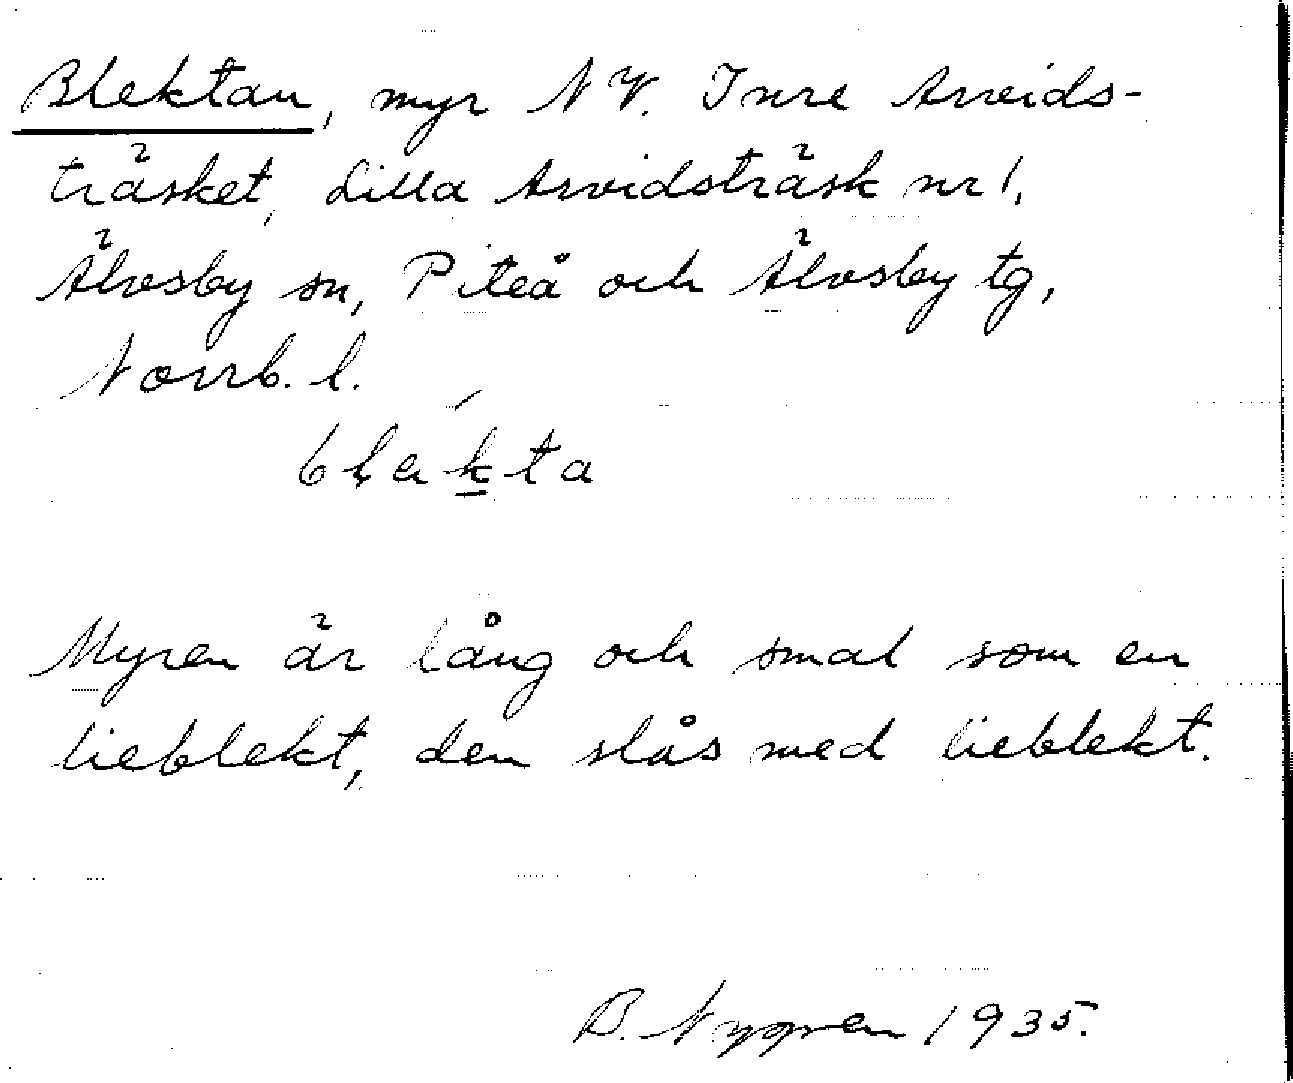 Blektan, myr N V. Inre Arvids-
träsket, Lilla Arvidsträsk nr 1,
Älvsby sn, Piteå och Älvsby tg,
Norrb. l.
blekta
Myren är lång och smal som en
lieblekt, den slås med lieblekt.
B. Nygren 1935.